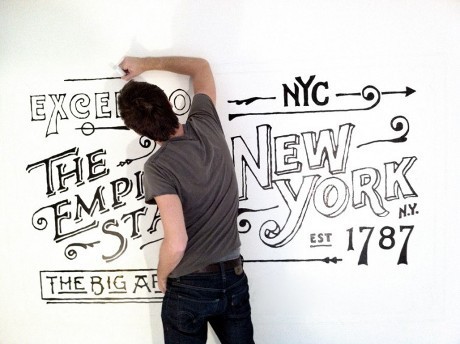 EXCE O
THE
EMPI
STA
THE BIG AP
NYC
NEW
YORK
N.Y.
EST 1787